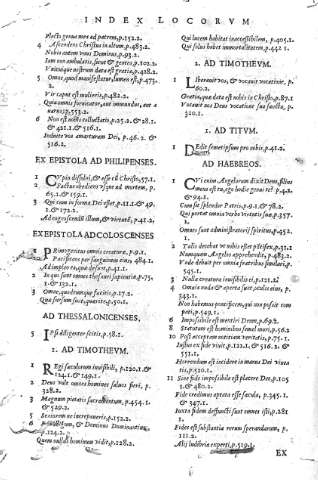 INDEX LOCORVM
Flecto genua mea ad patrem, p.152.2.
4 Ascendens Christus in altum, p.485.2.
Nobis autem vnus Dominus, p.95.2.
Iam non ambuletis, sicut & gentes, p.102.2.
Vnicuique nostrum data est gratia, p.428.2.
5 Omne, quod manifestatur, lumen est, p.473.
2.
Vir caput est mulieris, p.482.2.
Quia omnis fornicator, aut immundus, aut a
uarus, p.553.2.
6 Non est nobis colluctatio, p.25.2. & 28.1.
& 421.2. & 516.1.
Induite vos armaturam Dei, p.46.2. &
516.2.
EX EPISTOLA AD PHILIPENSES.
1 CVpio dissolui, & esse cū Christo, 57.1.
2 Factus obediens vsque ad mortem, p.
65.2. & 159.1.
3 Qui cum in forma Dei esset, p.11.1. & 49.
1. & 172.2.
EX EPISTOLA AD COLOSCENSES
1 PRimogenitus omnis creaturæ, p.9.1.
Pacificans per sanguinem eius, 484.1.
2 In quo sunt omnes thesauri sapientiæ, p.75.
1. & 132.1.
2 Omne, quodcunque facitis, p.17.2.
Quæ sursum sunt, quærite, p.50.2.
AD THESSALONICENSES,
5 IPsi diligenter scitis, p.58.2.
1. AD TIMOTHEVM.
1 REgi sæculorum inuisibili, p.120.1. &
124.1. & 149.1.
2 Deus vult omnes homines saluos fieri, p.
328.2.
3 Magnum pietatis sacramentum, p.454.1.
& 529.2.
5 Seniorem ne increpaueris, p.152.2.
& Dominus Dominantium,
p.124.2.
Quem nullus hominum vidit, p.128.2.
Qui lucem habitat inaccessibilem, p.405.2.
Qui solus habet immortalitatem, p.442.1.
2. AD TIMOTHEVM.
1 LIberauit nos, & vocauit vocatione, p.
60.2.
Gratia, quæ data est nobis in Christo, p.87.1
Vocauit nos Deus vocatione sua sancta, p.
320.1.
1. AD TITVM.
1 DEdit semetipsum pro nobis, p.41.2.
AD HAEBREOS.
1 CVi enim Angelorum dixit Deus, filius
meus es tu, ego hodie genui te? p.4.2.
& 94.2.
Cum sit splendor Patris, p.9.1. & 78.2.
Qui portat omnia verbo virtutis suæ, p.357.
1.
Omnes sunt administratorij spiritus, p.452.
1.
2 Nunquam Angelos apprehendit, p.483.2.
545.1.
3 Nulla creatura inuisibilis ei, p.121.2.
4 Omnia nuda & aperta sunt oculis eius, p.
345.1.
Non habemus pontificem, qui non possit com
pati, p.549.1.
6 Impossibile est mentiri Deum, p.69.2.
8 Statutum est hominibus semel mori, p.56.2
10 Post acceptam notitiam veritatis, p.75.1.
Iustus ex fide viuit, p.121.1. & 516.2. &
551.1.
Horrendum est incidere in manus Dei viuen
tis, p.520.1.
11 Sine fide impossibile est placere Deo, p.105
1. & 480.1.
Fide credimus aptata esse sæcula, p.345.1.
& 347.1.
Iuxta fidem defuncti sunt omnes isti, p.281
1.
Fides est substantia rerum sperandarum, p.
111.2.
Alij ludibria experti, p.519.1.
EX